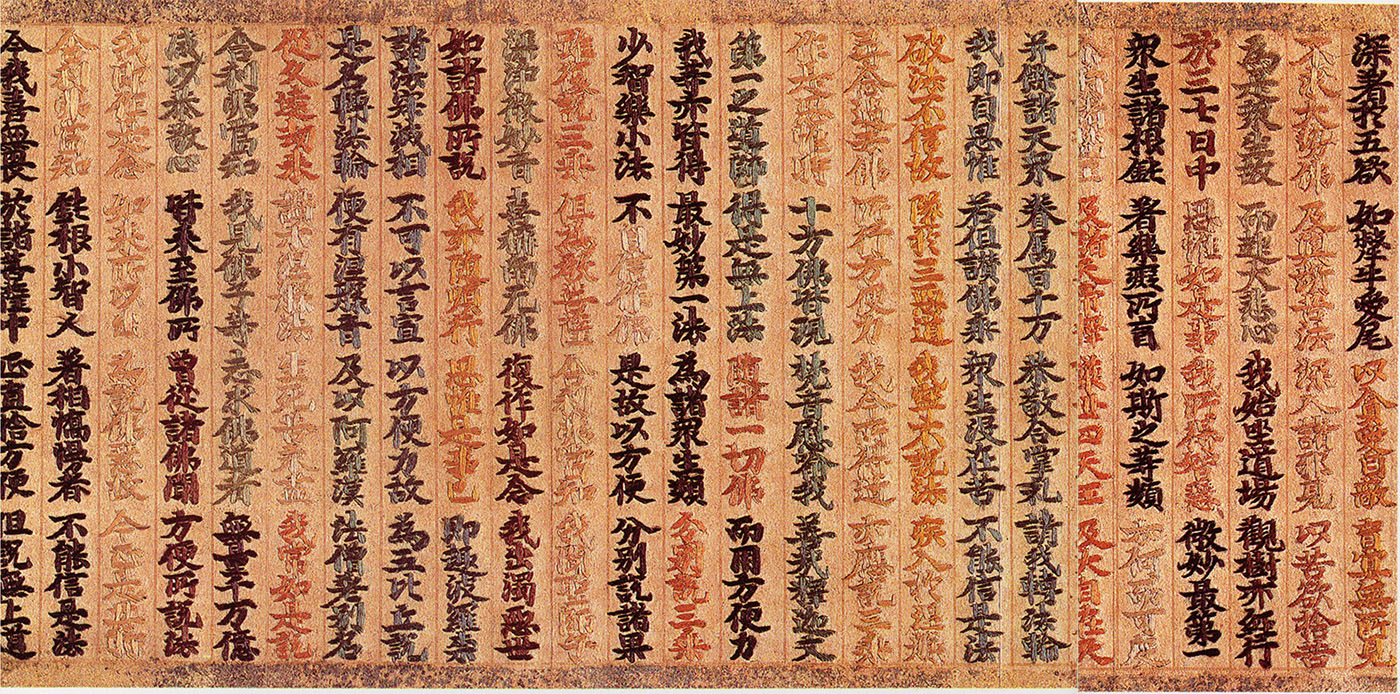 深著於五欲 如犛牛愛尾 以貪故自蔽 盲冥無所見
不求大勢佛 及與斷苦法 深入諸邪見 以苦欲捨苦
為是衆生故 而起大悲心 我始坐道場 觀樹亦經行
於三七日中 思惟如是事 我所得智慧 微妙最第一
衆生諸根鈍 著樂癡所盲 如斯之等類 云何而可度
爾時諸梵王 及諸天帝釋 護世四天王 及大自在天
并餘諸天衆 眷属百千万 恭敬合掌礼 請我轉法輪
我即自思惟 若但讃佛乘 衆生沒在苦 不能信是法
破法不信故 墜於三惡道 我寧不説法 疾入於涅槃
尋念過去佛 所行方便力 我今所得道 亦應説三乘
作是思惟時 十方佛皆現 梵音慰喻我 善哉釋迦文
第一之道師 得是無上法 隨諸一切佛 而用方便力
我等亦皆得 最妙第一法 為諸衆生類 分別説三乘
少智樂小法 不自信作佛 是故以方便 分別説諸果
雖復説三乘 但為教菩薩 舍利弗當知 我聞聖師子
深淨微妙音 喜稱南无佛 復作如是念 我出濁惡世
如諸佛所説 我亦隨順行 思惟是事已 即趣波羅奈
諸法寂滅相 不可以言宣 以方便力故 為五比丘説
是名轉法輪 便有涅槃音 及以阿羅漢 法僧差別名
從久遠劫來 讃示涅槃法 生死苦永盡 我常如是説
舍利弗當知 我見佛子等 志求佛道者 無量千万億
咸以恭敬心 皆來至佛所 曾從諸佛聞 方便所説法
我即作是念 如來所以出 為説佛慧故 今正是其時
舍利弗當知 鈍根小智人 著相憍慢者 不能信是法
今我喜無畏 於諸菩薩中 正直捨方便 但説無上道